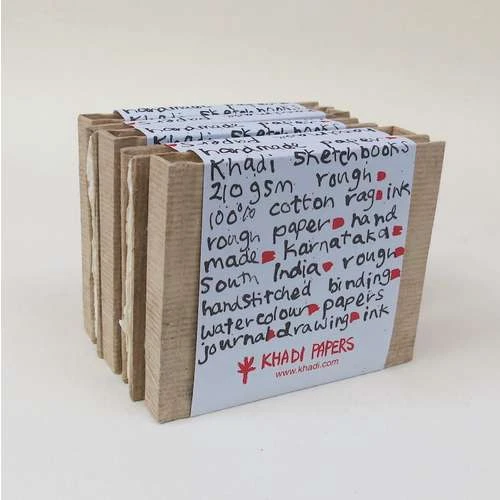 Khadi Sketchboo
Khadi Sketchbooks
handmade Paper
Khadi Sketchbooks
210gsm rough
100% cotton rag ink
rough paper hand
made Karnataka
South India rough
handstitched binding
watercolour papers
journal drawing ink
KHADI PAPERS
www.khadi.com